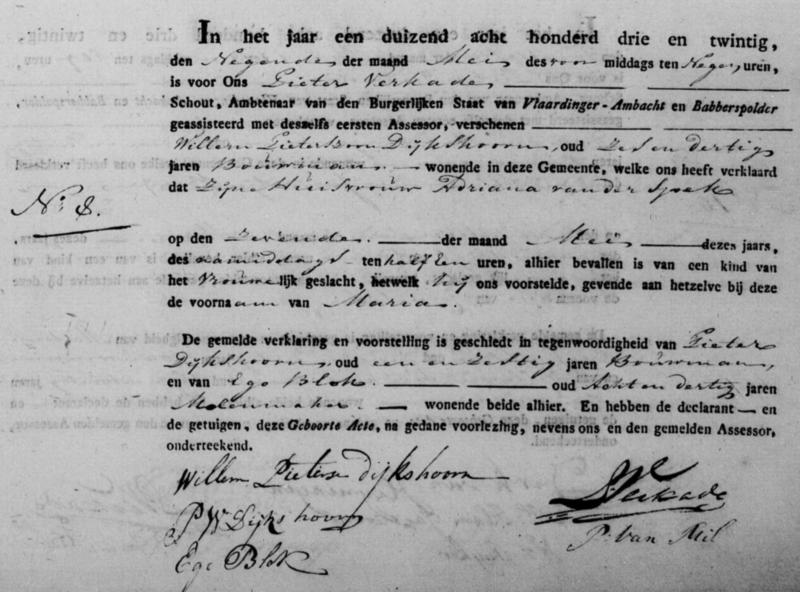 In het jaar een duizend acht honderd drie en twintig,
den Negende der maand Mei des voor middags ten Negen uren,
is voor Ons Pieter Verkade
Schout, Ambtenaar van den Burgerlijken Staat van Vlaardinger-Ambacht en Babberspolder
geassisteerd met desselfs eersten Assessor, verschenen
Willem Pieterszoon Dijkshoorn, oud Zes en dertig
jaren Bouwman wonende in deze Gemeente, welke ons heeft verklaard
dat Zijne Huisvrouw Adriana van der Spek
No. 8.
op den Zevende der maand Mei dezes jaars,
des namiddags ten half een uren, alhier bevallen is van een kind van
het Vrouwelijk geslacht, hetwelk hij ons voorstelde, gevende aan hetzelve bij deze
de voornaam van Maria.
De gemelde verklaring en voorstelling is geschiedt in tegenwoordigheid van Pieter
Dijkshoorn, oud een en Zestig jaren Bouwman,
en van Ege Blok. oud Acht en dertig jaren
Molenmaker. wonende beide alhier. En hebben de declarant en
de getuigen, deze Geboorte Acte, na gedane voorlezing, nevens ons en den gemelden Assessor,
onderteekend.
Willem Pieterse Dijkshoorn
P W Dijkshoorn
Ege Blok
Verkade
P. van Mil